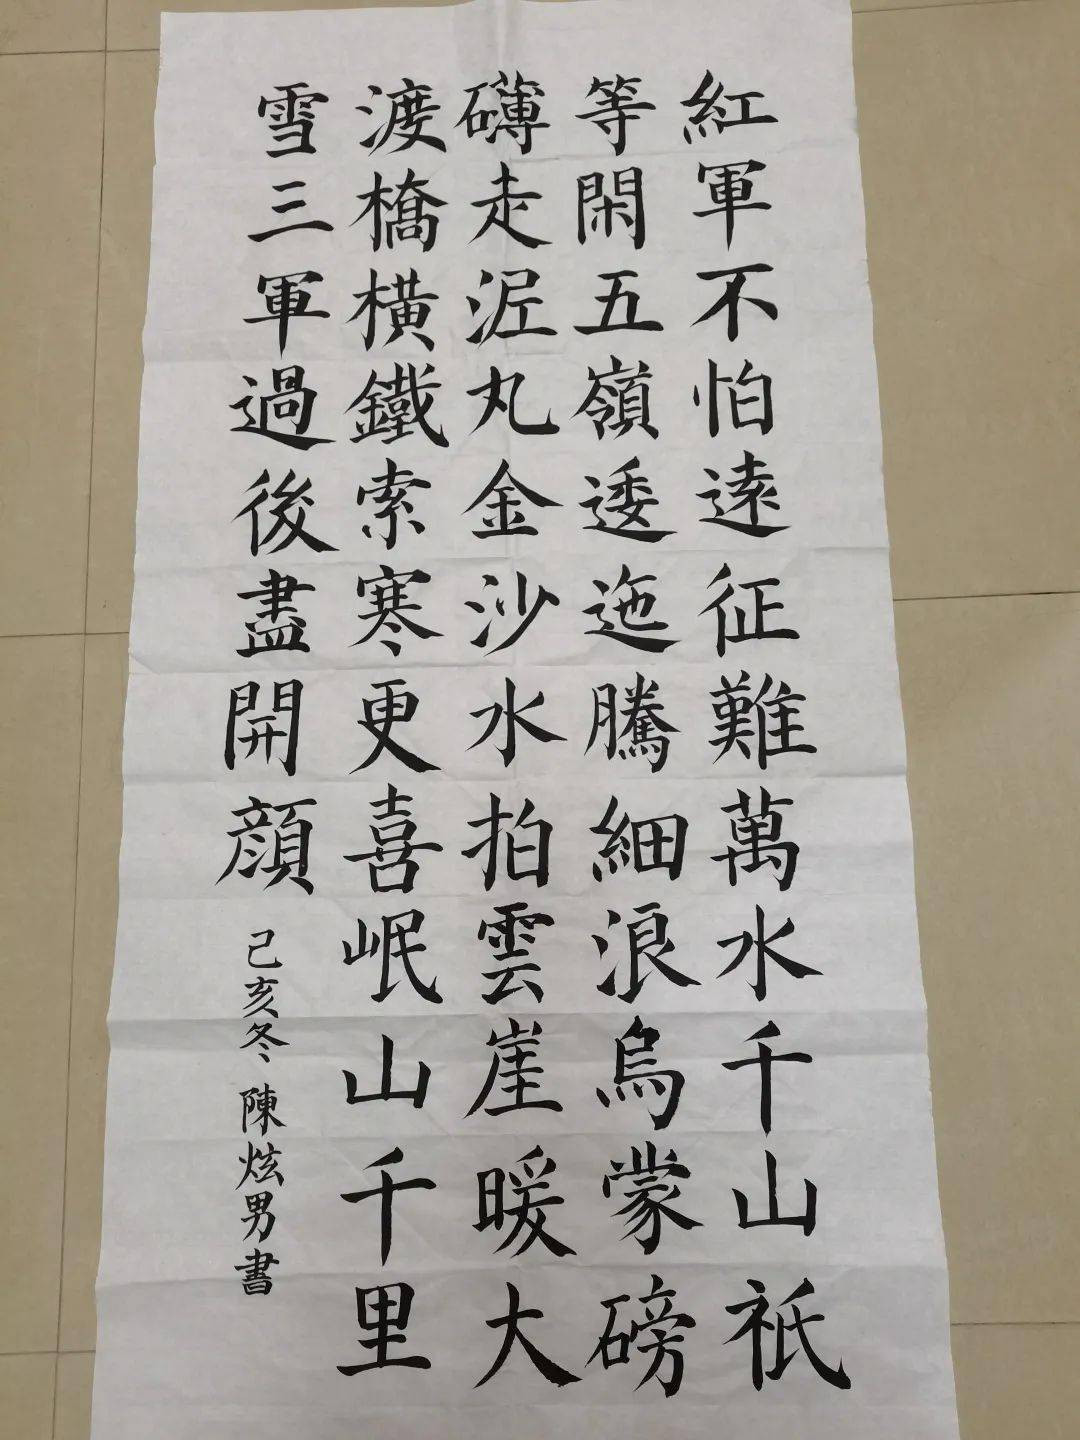 紅軍不怕遠征難萬水千山祇
等閑五嶺逶迤騰細浪烏蒙磅
礴走泥丸金沙水拍雲崖暖大
渡橋橫鐵索寒更喜岷山千里
雪三軍過後盡開顏
己亥冬 陳炫男書